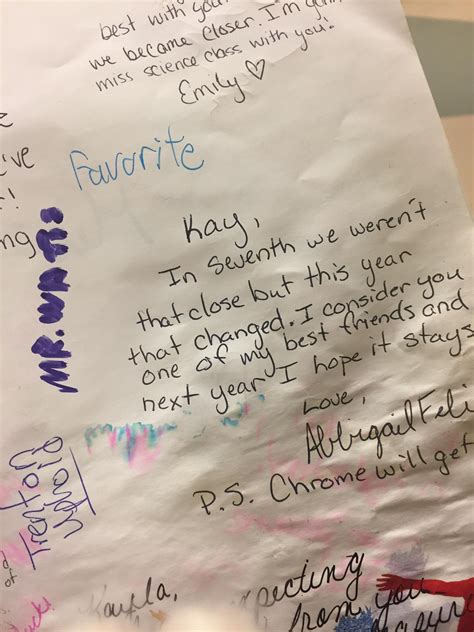 best with you
we became closer. I'm gonn
miss science class with you!
Emily
've
Favorite
ng
Kay,
In seventh we weren't
that close but this year
that changed. I consider you
one of my best friends and
next year I hope it stays
Love,
Abbigail Feli
P.S. Chrome will get
Trenton
of
Kayla,
pecting
from you